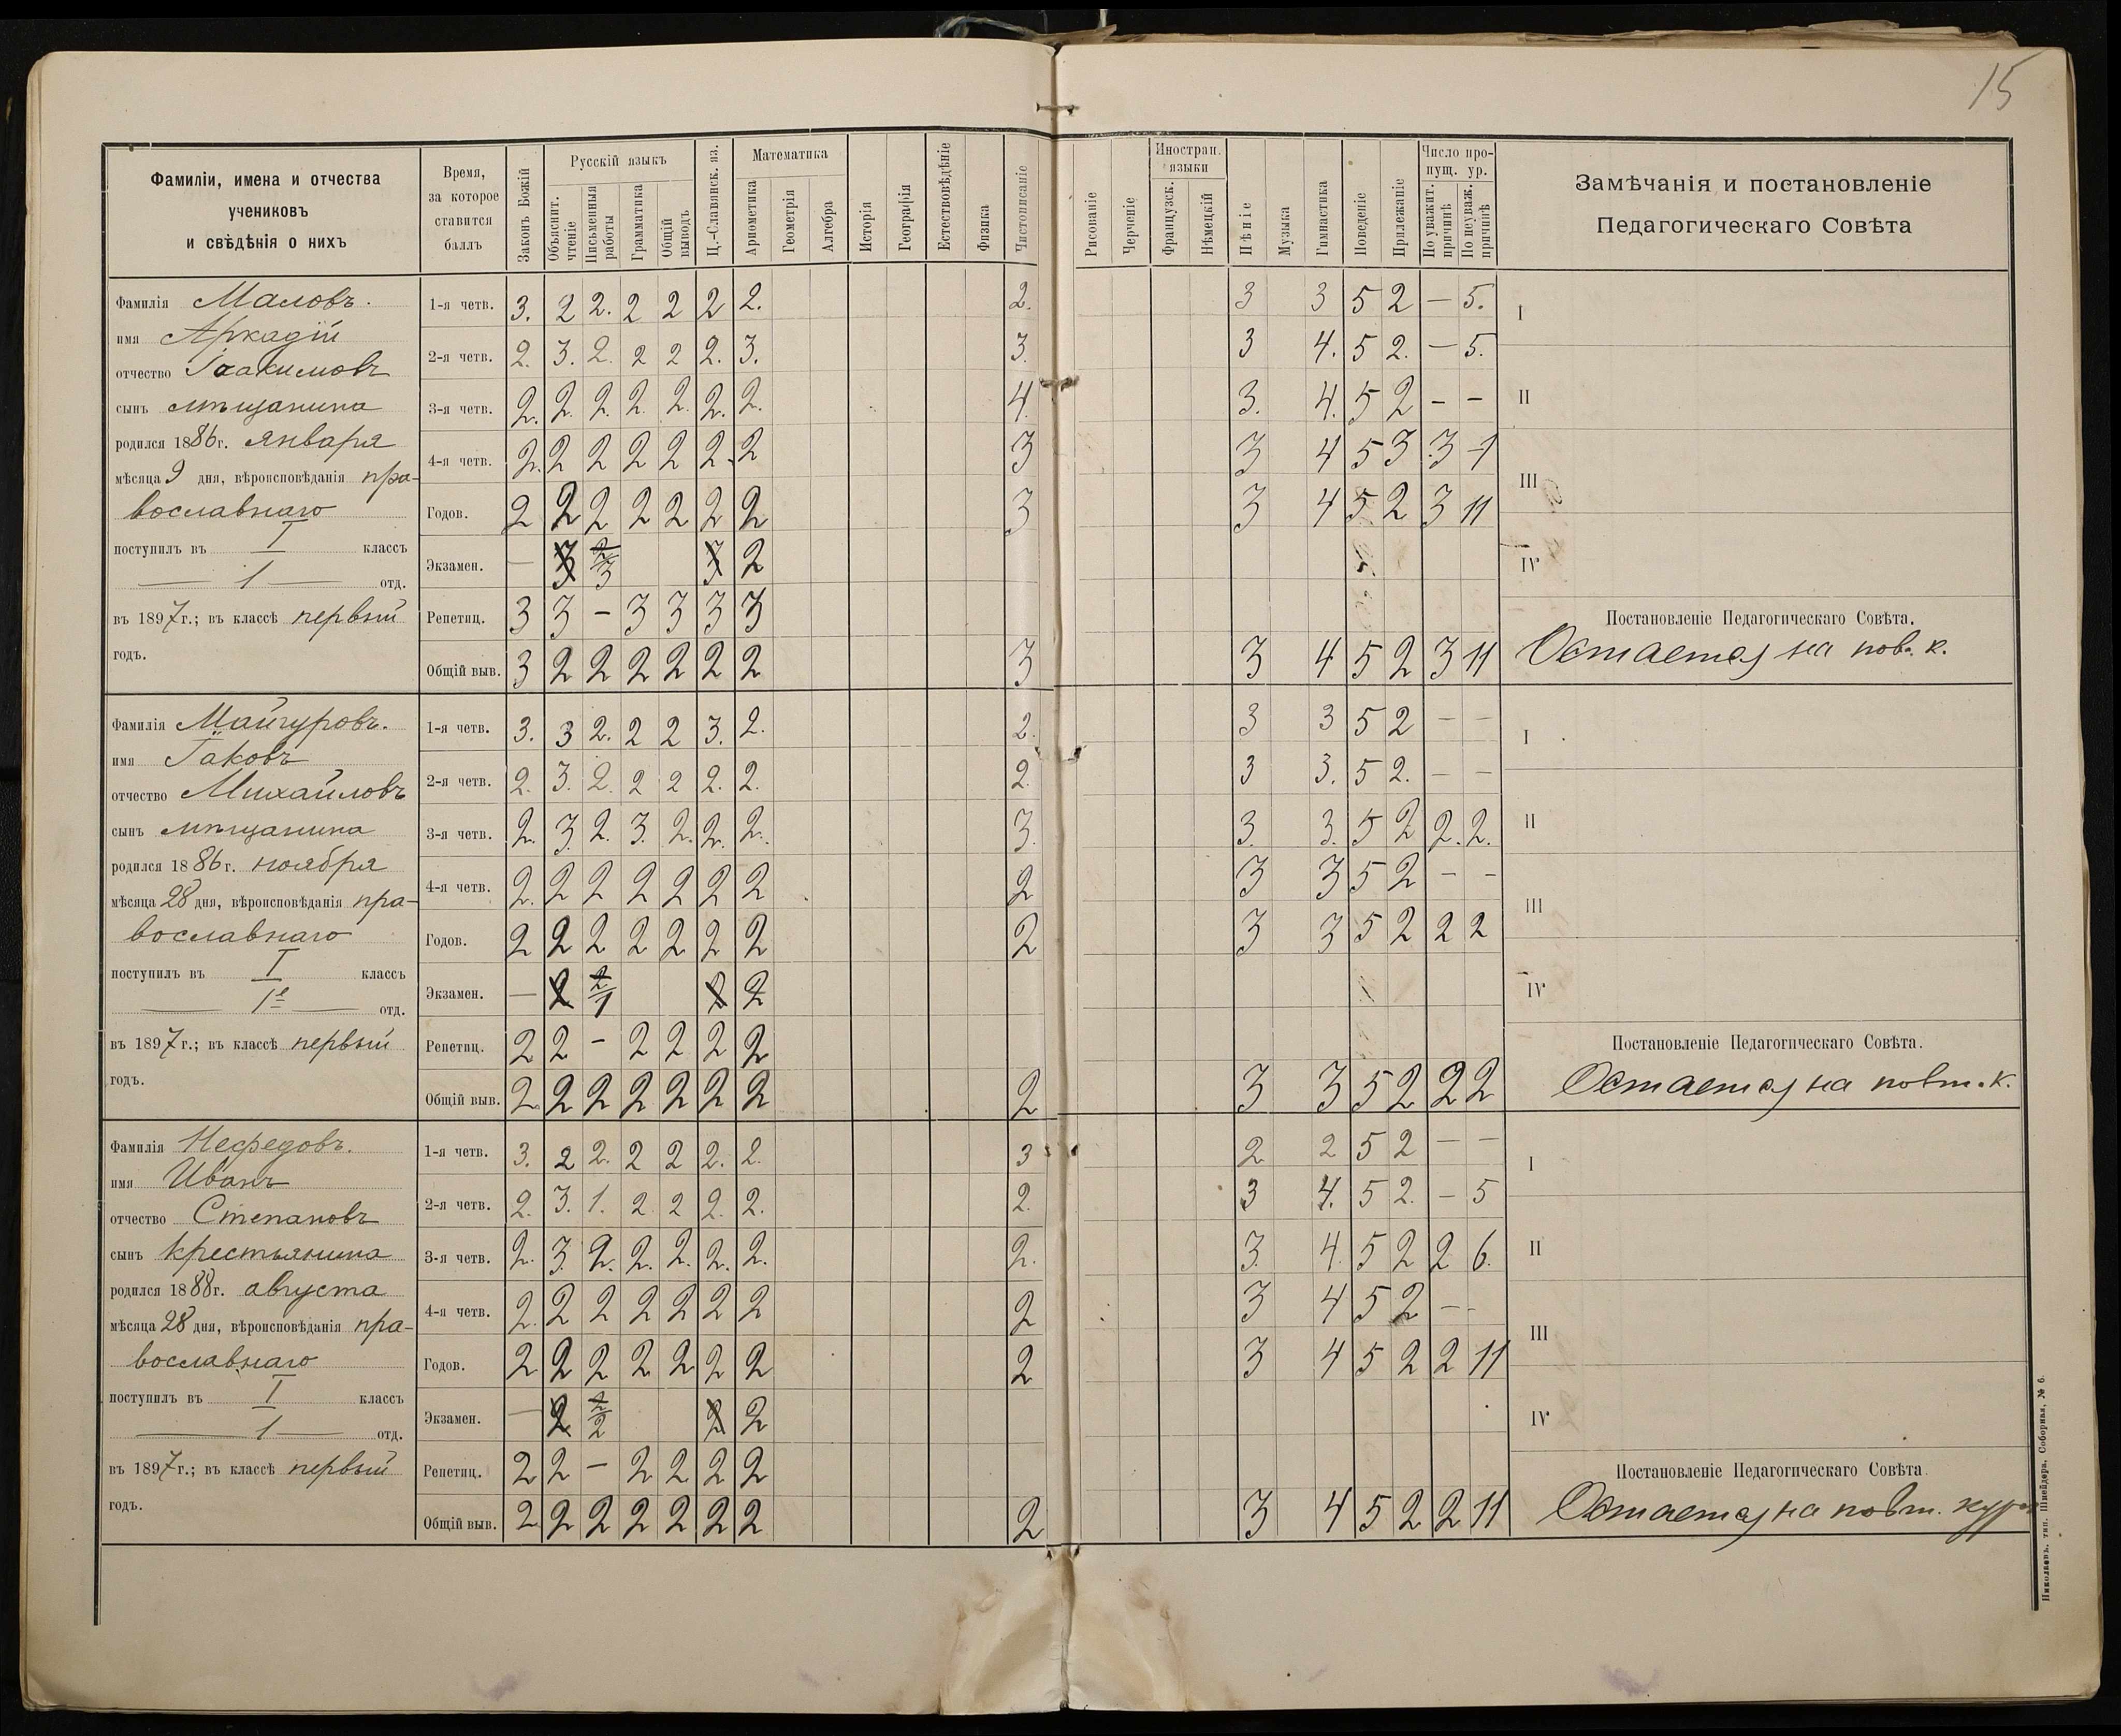 15
Фамиліи, имена и отчества
учениковъ
и свѣдѣнія о нихъ
Время,
за которое
ставится
баллъ
Законъ Божій
Русскій языкъ
Объяснит. чтеніе
Письменныя работы
Грамматика
Общій выводъ
Ц.-Славянск. яз.
Математика
Ариѳметика
Геометрія
Алгебра
Исторія
Географія
Естествовѣдѣніе
Физика
Чистописаніе
Рисованіе
Черченіе
Иностран. языки
Французск.
Нѣмецкій
Пѣніе
Музыка
Гимнастика
Поведеніе
Прилежаніе
Число про-
пущ. ур.
По уважит. причинѣ
По неуваж. причинѣ
Замѣчанія и постановленіе
Педагогическаго Совѣта
Фамилія Маловъ.
имя Аркадій
отчество Іоакимовъ
сынъ мѣщанина
родился 1886 г. января
мѣсяца 9 дня, вѣроисповѣданія пра-
вославнаго
поступилъ въ I классъ
1 отд.
въ 1897 г.; въ классѣ первый
годъ.
1-я четв. 3. 2 2. 2 2 2 2. 2. 3 3 5 2 — 5.
2-я четв. 2. 3. 2. 2 2 2. 3. 3. 3 4. 5 2. — 5.
3-я четв. 2. 2. 2. 2. 2. 2. 2. 4. 3. 4. 5 2 — —
4-я четв. 2. 2 2 2 2 2. 2 3 3 4 5 3 3 1
Годов. 2 2 2 2 2 2 2 3 3 4 5 2 3 11
Экзамен. — 3 2/3 3 2
Репетиц. 3 3 — 3 3 3 3
Общій выв. 3 2 2 2 2 2 2 3 3 4 5 2 3 11
I
II
III
IV
Постановленіе Педагогическаго Совѣта.
Остается на пов. к.
Фамилія Майгуровъ.
имя Іаковъ
отчество Михайловъ
сынъ мѣщанина
родился 1886 г. ноября
мѣсяца 28 дня, вѣроисповѣданія пра-
вославнаго
поступилъ въ I классъ
1е отд.
въ 1897 г.; въ классѣ первый
годъ.
1-я четв. 3. 3 2. 2 2 3. 2. 2. 3 3 5 2 — —
2-я четв. 2. 3. 2. 2 2 2. 2. 2. 3 3. 5 2. — —
3-я четв. 2. 3. 2. 3. 2. 2. 2. 3. 3. 3. 5 2 2. 2.
4-я четв. 2. 2 2 2 2 2 2 2 3 3 5 2 — —
Годов. 2 2 2 2 2 2 2 2 3 3 5 2 2 2
Экзамен. — 2 2/1 2 2
Репетиц. 2 2 — 2 2 2 2
Общій выв. 2. 2 2 2 2 2 2 2 3 3 5 2 2 2
I
II
III
IV
Постановленіе Педагогическаго Совѣта.
Остается на повт. к.
Фамилія Нефедовъ.
имя Иванъ
отчество Степановъ
сынъ крестьянина
родился 1888 г. августа
мѣсяца 28 дня, вѣроисповѣданія пра-
вославнаго
поступилъ въ I классъ
1 отд.
въ 1897 г.; въ классѣ первый
годъ.
1-я четв. 3. 2 2. 2 2 2. 2. 3 2 2 5 2 — —
2-я четв. 2. 3. 1. 2 2 2. 2. 2. 3 4. 5 2. — 5
3-я четв. 2. 3. 2. 2. 2. 2. 2. 2. 3. 4. 5 2 2 6.
4-я четв. 2. 2 2 2 2 2 2 2 3 4 5 2 — —
Годов. 2 2 2 2 2 2 2 2 3 4 5 2 2 11
Экзамен. — 2 2/2 2 2
Репетиц. 2 2 — 2 2 2 2
Общій выв. 2 2 2 2 2 2 2 2 3 4 5 2 2 11
I
II
III
IV
Постановленіе Педагогическаго Совѣта.
Остается на повт. курс
Николаевъ, тип. Шнейдера, Соборная, № 6.